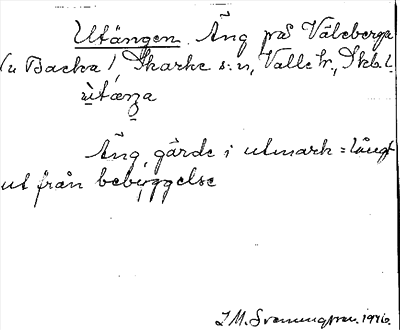 Utängen. Äng på Väleberga
(u Backa), Skarke s:n, Valle hd, Skbl.
ùtæŋa
Äng, gärde i utmark = långt
ut från bebyggelse
J M. Svenningson. 1946.